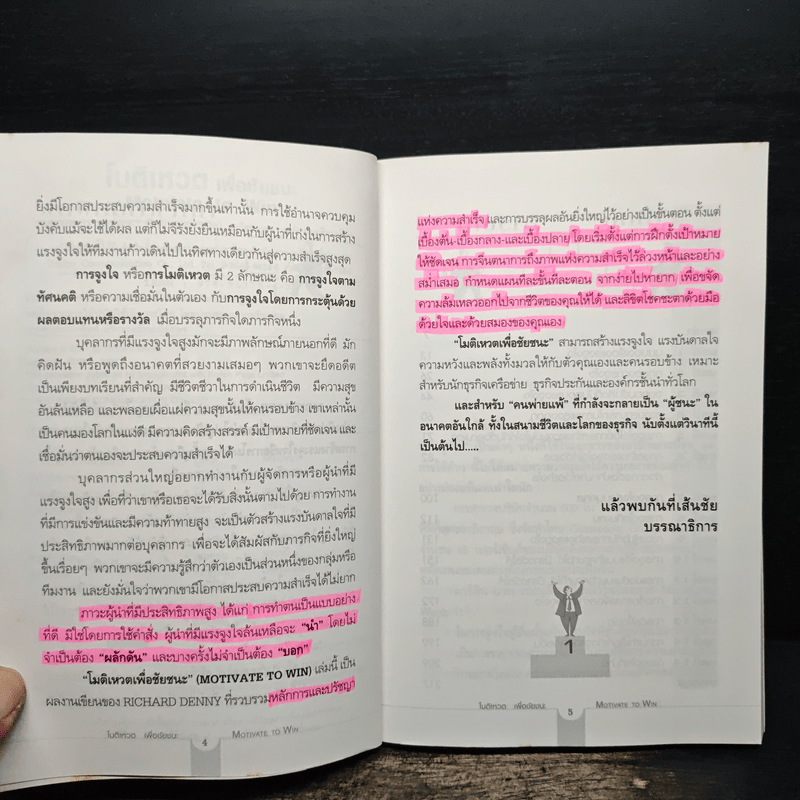 ยิ่งมีโอกาสประสบความสำเร็จมากขึ้นเท่านั้น การใช้อำนาจควบคุม
บังคับแม้จะใช้ได้ผล แต่ก็ไม่จีรังยั่งยืนเหมือนกับผู้นำที่เก่งในการสร้าง
แรงจูงใจให้ทีมงานก้าวเดินไปในทิศทางเดียวกันสู่ความสำเร็จสูงสุด
การจูงใจ หรือการโมติเหวต มี 2 ลักษณะ คือ การจูงใจตาม
ทัศนคติ หรือความเชื่อมั่นในตัวเอง กับการจูงใจโดยการกระตุ้นด้วย
ผลตอบแทนหรือรางวัล เมื่อบรรลุภารกิจใดภารกิจหนึ่ง
บุคลากรที่มีแรงจูงใจสูงมักจะมีภาพลักษณ์ภายนอกที่ดี มัก
คิดฝัน หรือพูดถึงอนาคตที่สวยงามเสมอๆ พวกเขาจะยึดอดีต
เป็นเพียงบทเรียนที่สำคัญ มีชีวิตชีวาในการดำเนินชีวิต มีความสุข
อันล้นเหลือ และพลอยเผื่อแผ่ความสุขนั้นให้คนรอบข้าง เขาเหล่านั้น
เป็นคนมองโลกในแง่ดี มีความคิดสร้างสรรค์ มีเป้าหมายที่ชัดเจน และ
เชื่อมั่นว่าตนเองจะประสบความสำเร็จได้
บุคลากรส่วนใหญ่อยากทำงานกับผู้จัดการหรือผู้นำที่มี
แรงจูงใจสูง เพื่อที่ว่าเขาหรือเธอจะได้รับสิ่งนั้นตามไปด้วย การทำงาน
ที่มีการแข่งขันและมีความท้าทายสูง จะเป็นตัวสร้างแรงบันดาลใจที่มี
ประสิทธิภาพมากต่อบุคลากร เพื่อจะได้สัมผัสกับภารกิจที่ยิ่งใหญ่
ขึ้นเรื่อยๆ พวกเขาจะมีความรู้สึกว่าตัวเองเป็นส่วนหนึ่งของกลุ่มหรือ
ทีมงาน และยังมั่นใจว่าพวกเขามีโอกาสประสบความสำเร็จได้ไม่ยาก
ภาวะผู้นำที่มีประสิทธิภาพสูง ได้แก่ การทำตนเป็นแบบอย่าง
ที่ดี มิใช่โดยการใช้คำสั่ง ผู้นำที่มีแรงจูงใจล้นเหลือจะ "นำ" โดยไม่
จำเป็นต้อง "ผลักดัน" และบางครั้งไม่จำเป็นต้อง "บอก"
"โมติเหวตเพื่อชัยชนะ" (MOTIVATE TO WIN) เล่มนี้ เป็น
ผลงานเขียนของ RICHARD DENNY ที่รวบรวมหลักการและปรัชญา
โมติเหวต เพื่อชัยชนะ 4 MOTIVATE TO WIN
แห่งความสำเร็จ และการบรรลุผลอันยิ่งใหญ่ไว้อย่างเป็นขั้นตอน ตั้งแต่
เบื้องต้น-เบื้องกลาง-และเบื้องปลาย โดยเริ่มตั้งแต่การฝึกตั้งเป้าหมาย
ให้ชัดเจน การจินตนาการถึงภาพแห่งความสำเร็จไว้ล่วงหน้าและอย่าง
สม่ำเสมอ กำหนดแผนทีละขั้นทีละตอน จากง่ายไปหายาก เพื่อขจัด
ความล้มเหลวออกไปจากชีวิตของคุณให้ได้ และลิขิตโชคชะตาด้วยมือ
ด้วยใจและด้วยสมองของคุณเอง
"โมติเหวตเพื่อชัยชนะ" สามารถสร้างแรงจูงใจ แรงบันดาลใจ
ความหวังและพลังทั้งมวลให้กับตัวคุณเองและคนรอบข้าง เหมาะ
สำหรับนักธุรกิจเครือข่าย ธุรกิจประกันและองค์กรชั้นนำทั่วโลก
และสำหรับ "คนพ่ายแพ้" ที่กำลังจะกลายเป็น "ผู้ชนะ" ใน
อนาคตอันใกล้ ทั้งในสนามชีวิตและโลกของธุรกิจ นับตั้งแต่วินาทีนี้
เป็นต้นไป.....
แล้วพบกันที่เส้นชัย
บรรณาธิการ
1
โมติเหวต เพื่อชัยชนะ 5 MOTIVATE TO WIN